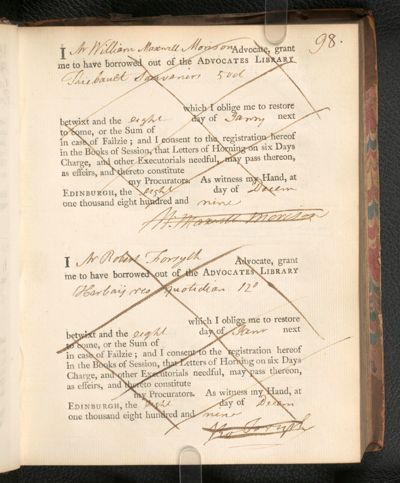 98.
I Mr William Maxwell Morison Advocate, grant
me to have borrowed out of the ADVOCATES LIBRARY
Thiebault Souvenirs 5 vol
which I oblige me to restore
betwixt and the eight day of Janry next
to come, or the Sum of
in case of Failzie; and I consent to the registration hereof
in the Books of Session, that Letters of Horning on six Days
Charge, and other Executorials needful, may pass thereon,
as effeirs, and thereto constitute
my Procurators. As witness my Hand, at
EDINBURGH, the eight day of Decem
one thousand eight hundred and nine
W. Maxwell Morison
I Mr Robert Forsyth Advocate, grant
me to have borrowed out of the ADVOCATES LIBRARY
quotidian 12o
which I oblige me to restore
betwixt and the eight day of Janr next
to come, or the Sum of
in case of Failzie; and I consent to the registration hereof
in the Books of Session, that Letters of Horning on six Days
Charge, and other Executorials needful, may pass thereon,
as effeirs, and thereto constitute
my Procurators. As witness my Hand, at
EDINBURGH, the eight day of Decem
one thousand eight hundred and nine
Forsyth